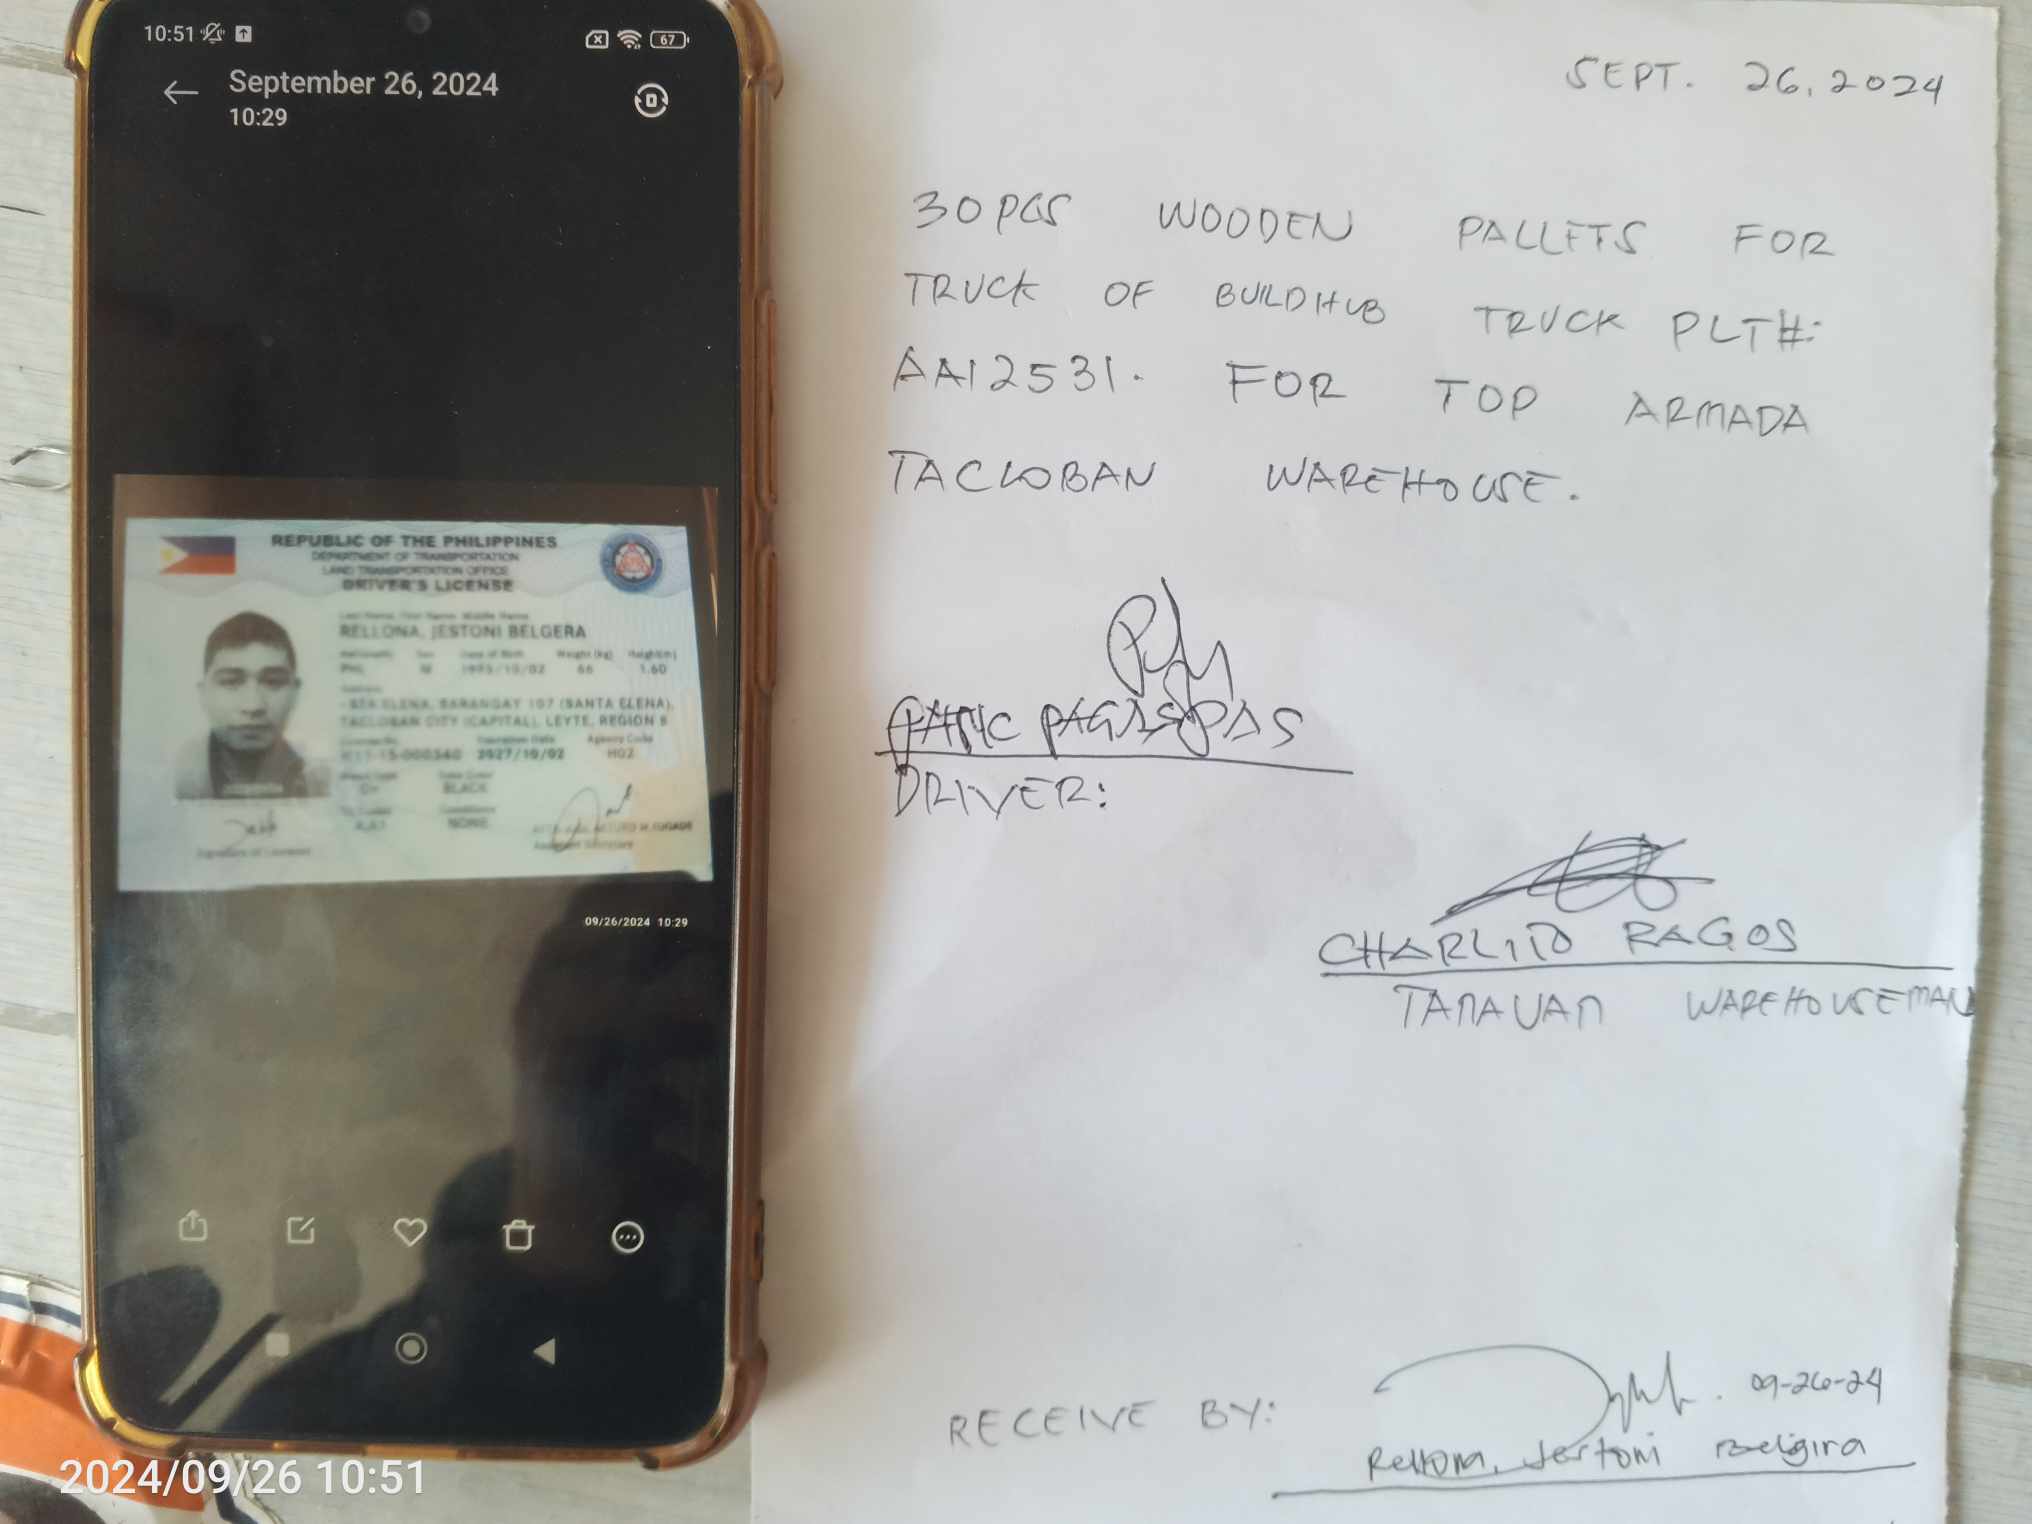 10:51
67
September 26, 2024
10:29
REPUBLIC OF THE PHILIPPINES
DEPARTMENT OF TRANSPORTATION
LAND TRANSPORTATION OFFICE
DRIVER'S LICENSE
Last Name, First Name, Middle Name
RELLONA, JESTONI BELGERA
Nationality Sex Date of Birth Weight (kg) Height(m)
PHL M 1995/10/02 66 1.60
Address
STA ELENA, BARANGAY 107 (SANTA ELENA),
TACLOBAN CITY (CAPITAL), LEYTE, REGION 8
License No. Expiration Date Agency Code
2027/10/02 H02
BLACK
Conditions
NONE
Signature of Licensee
Assistant Secretary
09/26/2024 10:29
SEPT. 26, 2024
30 PCS WOODEN PALLETS FOR
TRUCK OF BUILDHUB TRUCK PLT#:
AAI2531. FOR TOP ARMADA
TACLOBAN WAREHOUSE.
PAGASPAS
DRIVER:
CHARLITO RAGOS
TANAUAN WAREHOUSEMAN
RECEIVE BY:
09-26-24
Rellona, Jestoni Belgira
2024/09/26 10:51